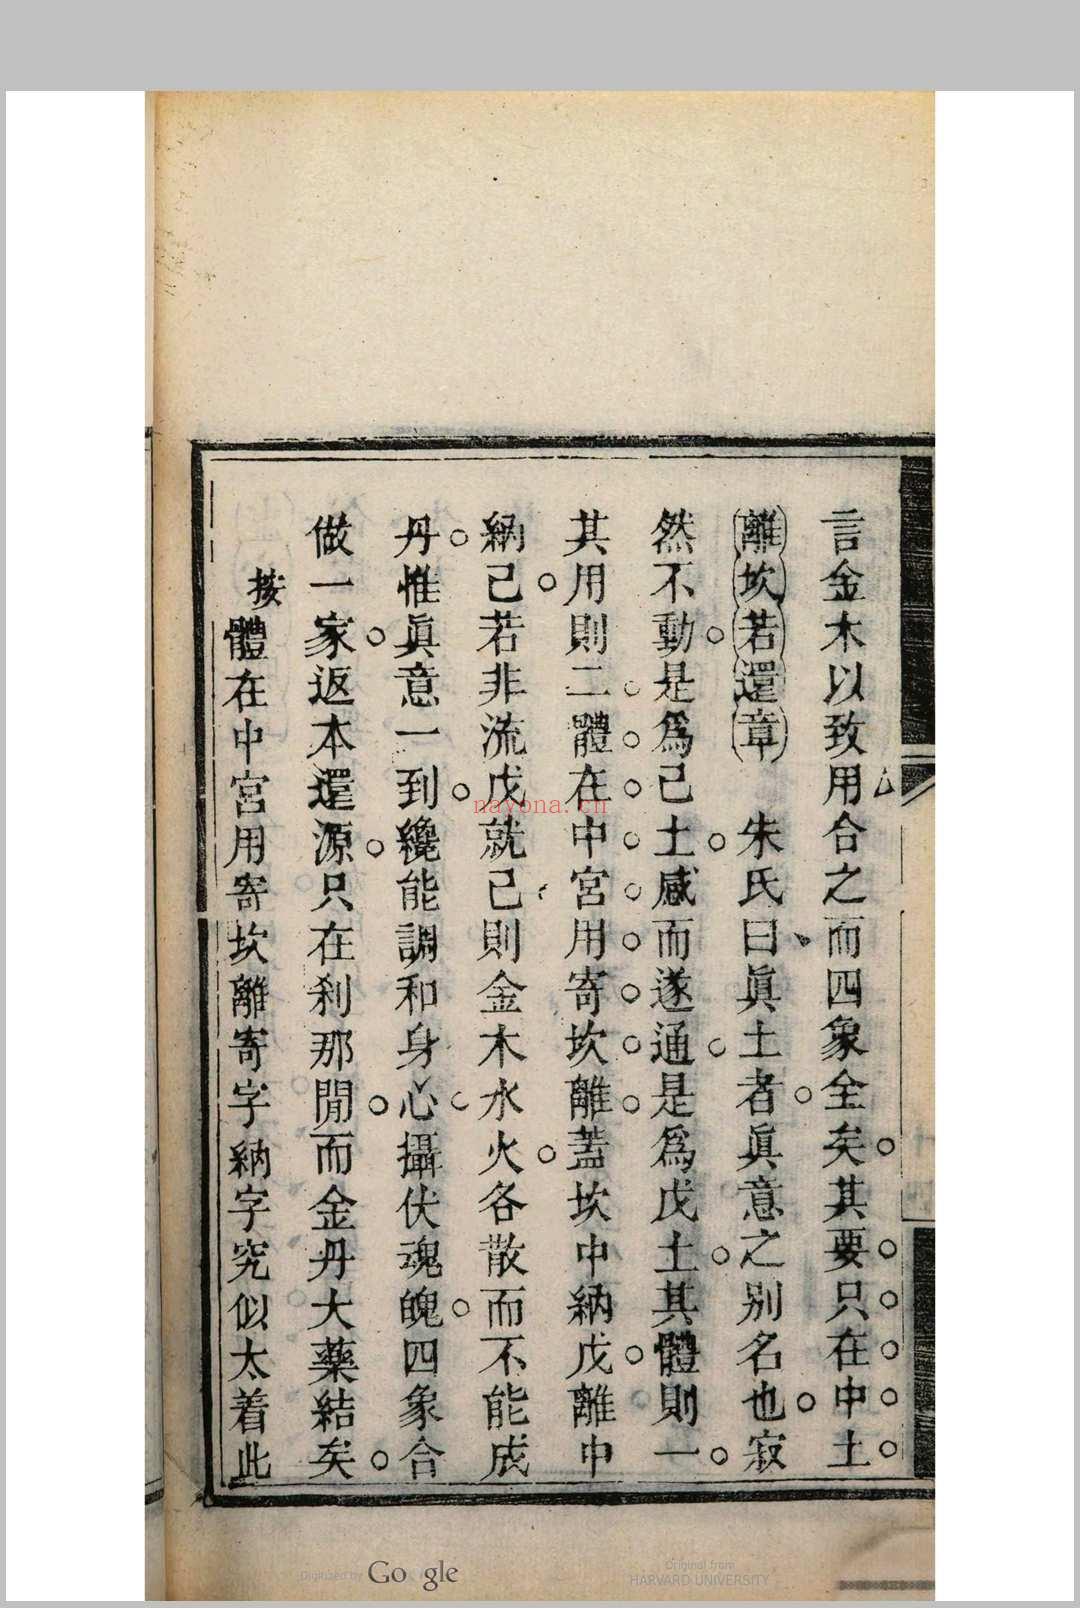 言金木以致用合之而四象全矣其要只在中土
離坎若還章　朱氏曰眞土者眞意之別名也寂
然不動是爲己土感而遂通是爲戊土其體則一
其用則二體在中宮用寄坎離蓋坎中納戊離中
納己若非流戊就己則金木水火各散而不能成
丹惟眞意一到纔能調和身心攝伏魂魄四象合
做一家返本還源只在刹那間而金丹大藥結矣
按體在中宮用寄坎離寄字納字究似太着此
nayona.cn
Digitized by Google
Original from
HARVARD UNIVERSITY